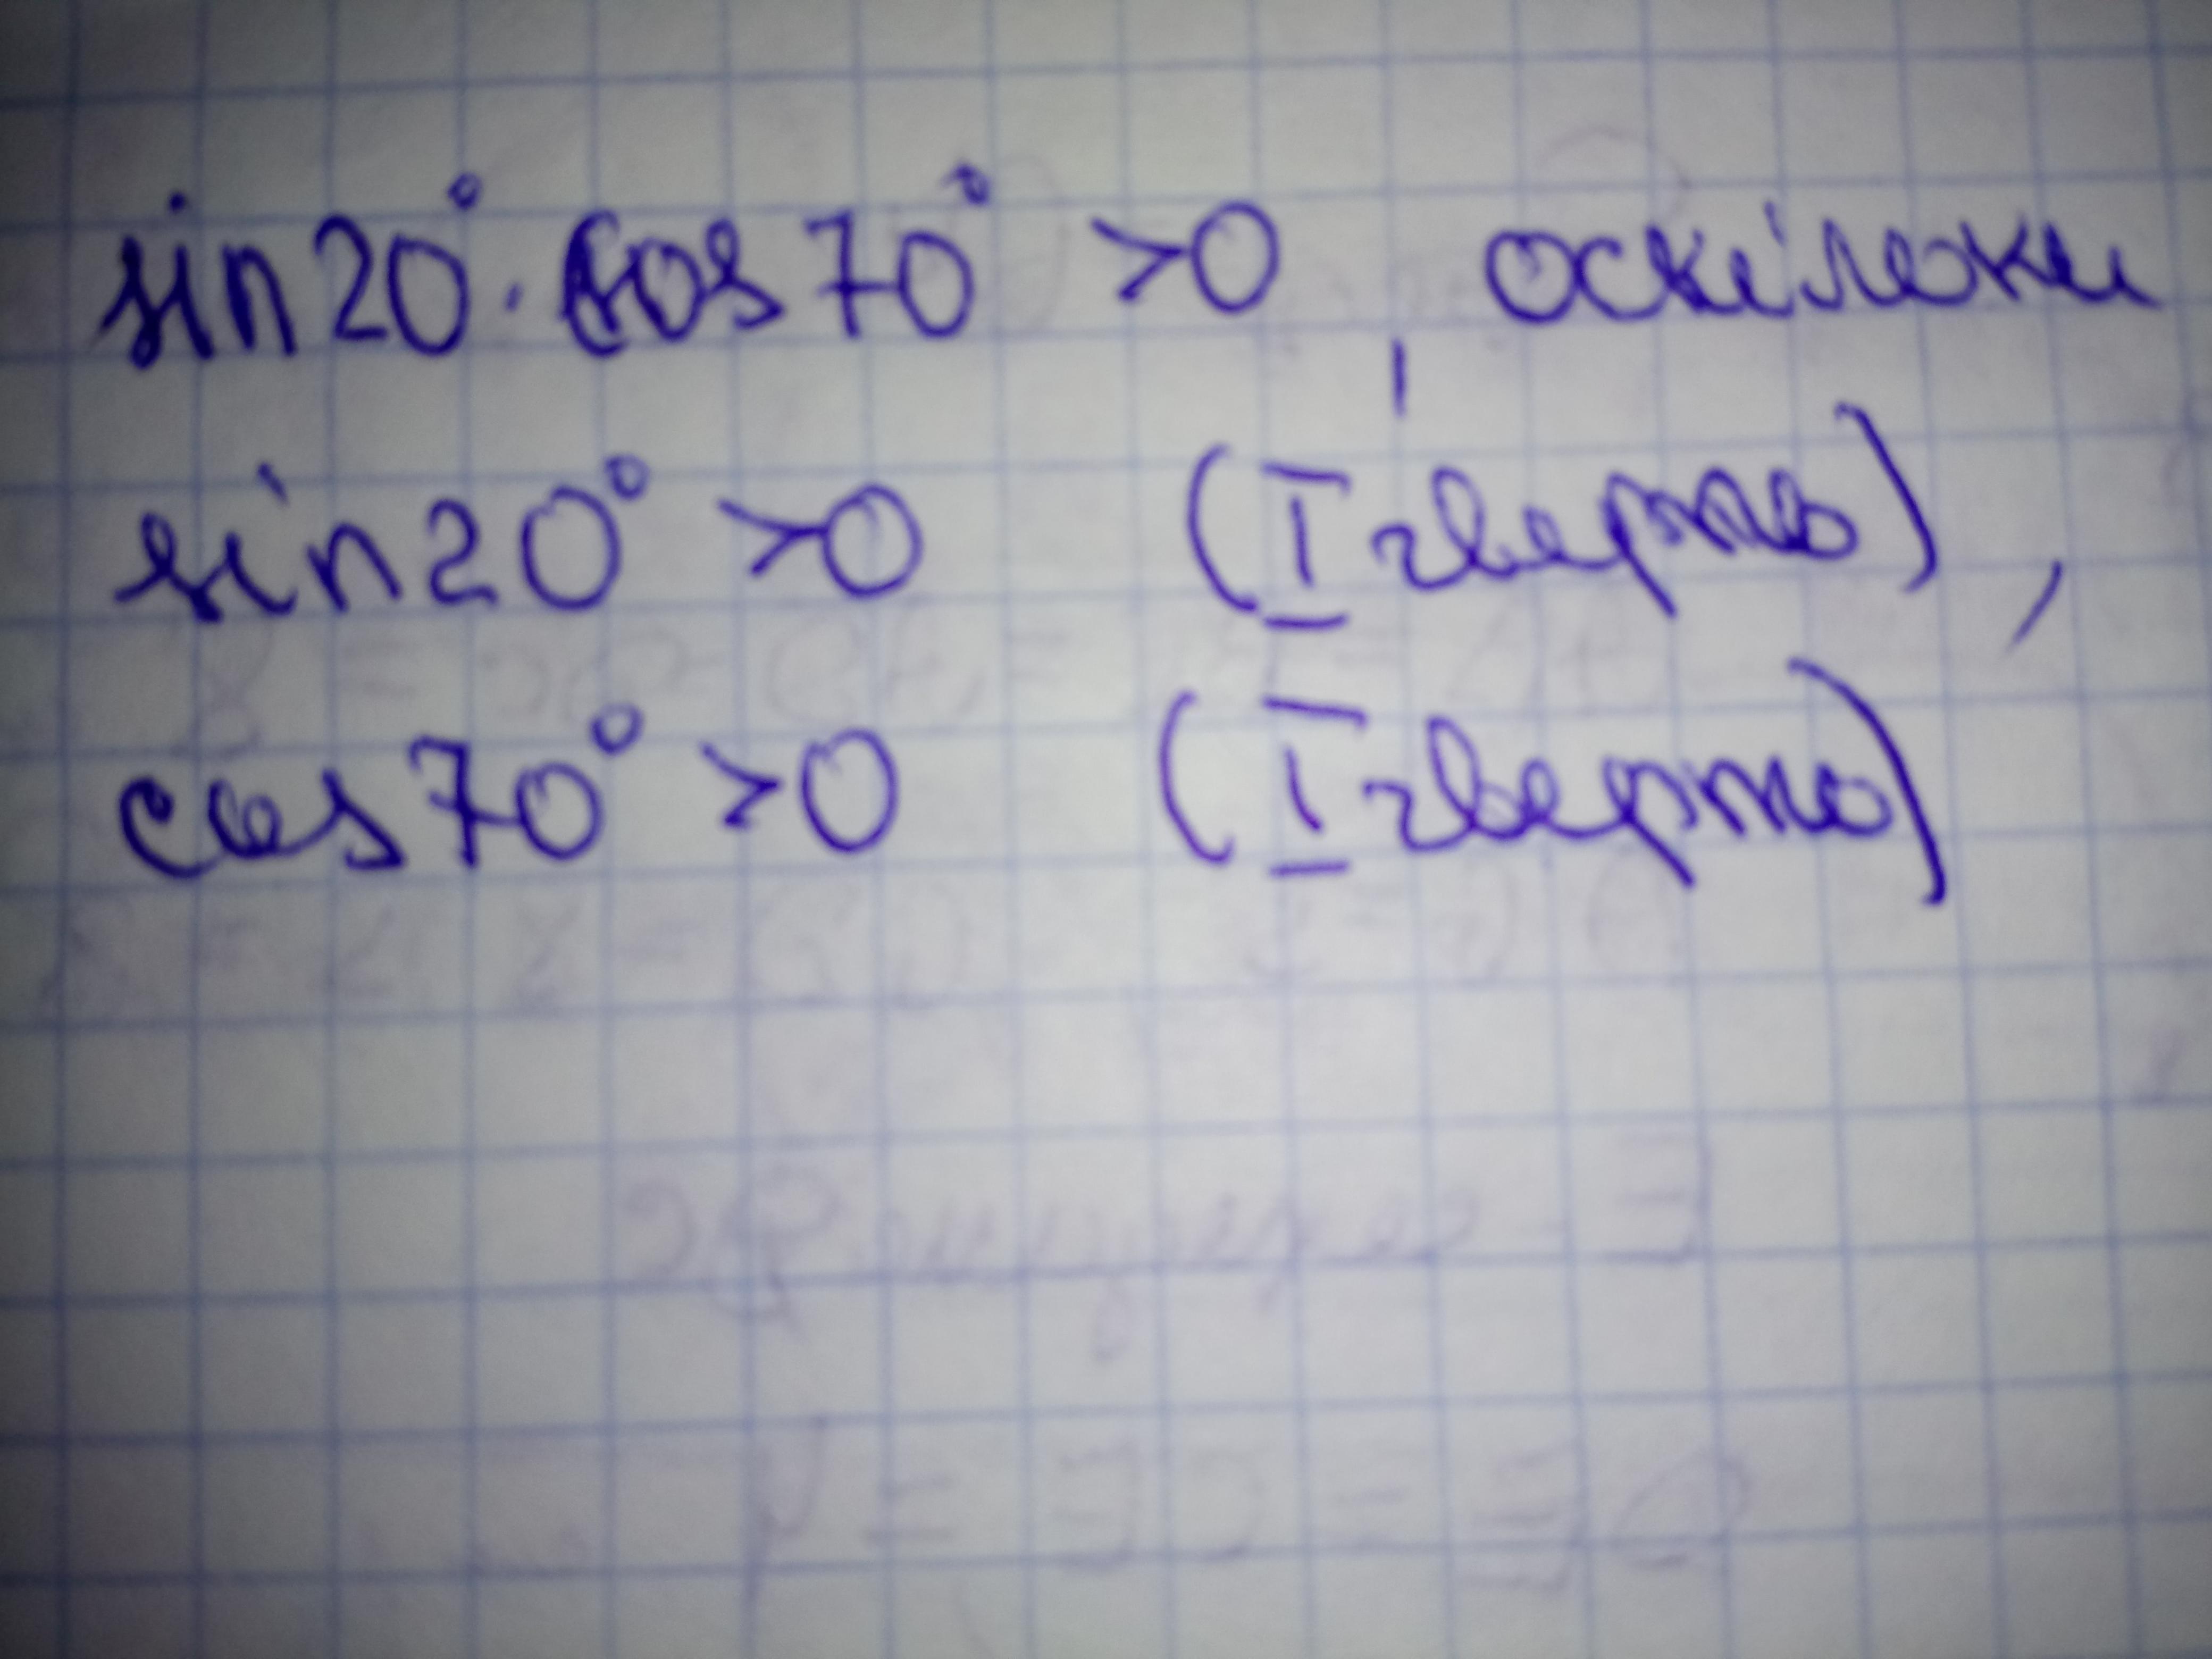 sin20°·cos70° >0, оскільки
sin20° >0 (I чверть),
cos70° >0 (I чверть)